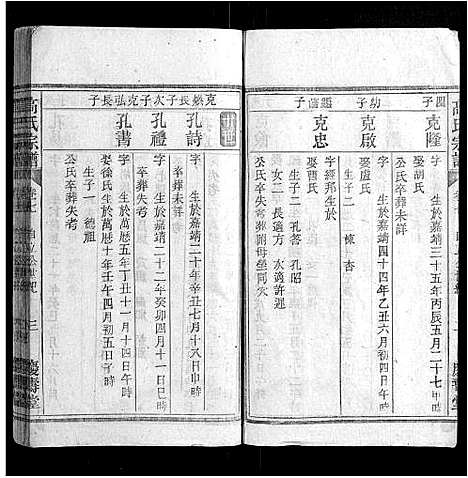 高氏宗譜
四子
克隆
字　生於嘉靖三十五年丙辰五月二十七申時
娶胡氏
公氏卒葬未詳
幼子
克啟
字　生於嘉靖四十四年乙丑六月初四日午時
娶盧氏
生子二　棟　杏
長子
克忠
字經邦生於
娶曹氏
生子二　孔著　孔昭
女二　長適方　次適許遲
公氏卒葬
世
克繼長子
孔詩
字　生於嘉靖二十年辛丑七月十八日申時
卒葬失考
次子
孔禮
字　生於嘉靖二十二年癸卯四月十一日巳時
卒葬失考
克弘長子
孔書
字　生於萬曆五年丁丑十一月十四日午時
娶徐氏生於萬曆十年壬午四月初五日午時
生子一　德祖
公氏卒葬失考
高氏宗譜
卷七
三
慶壽堂